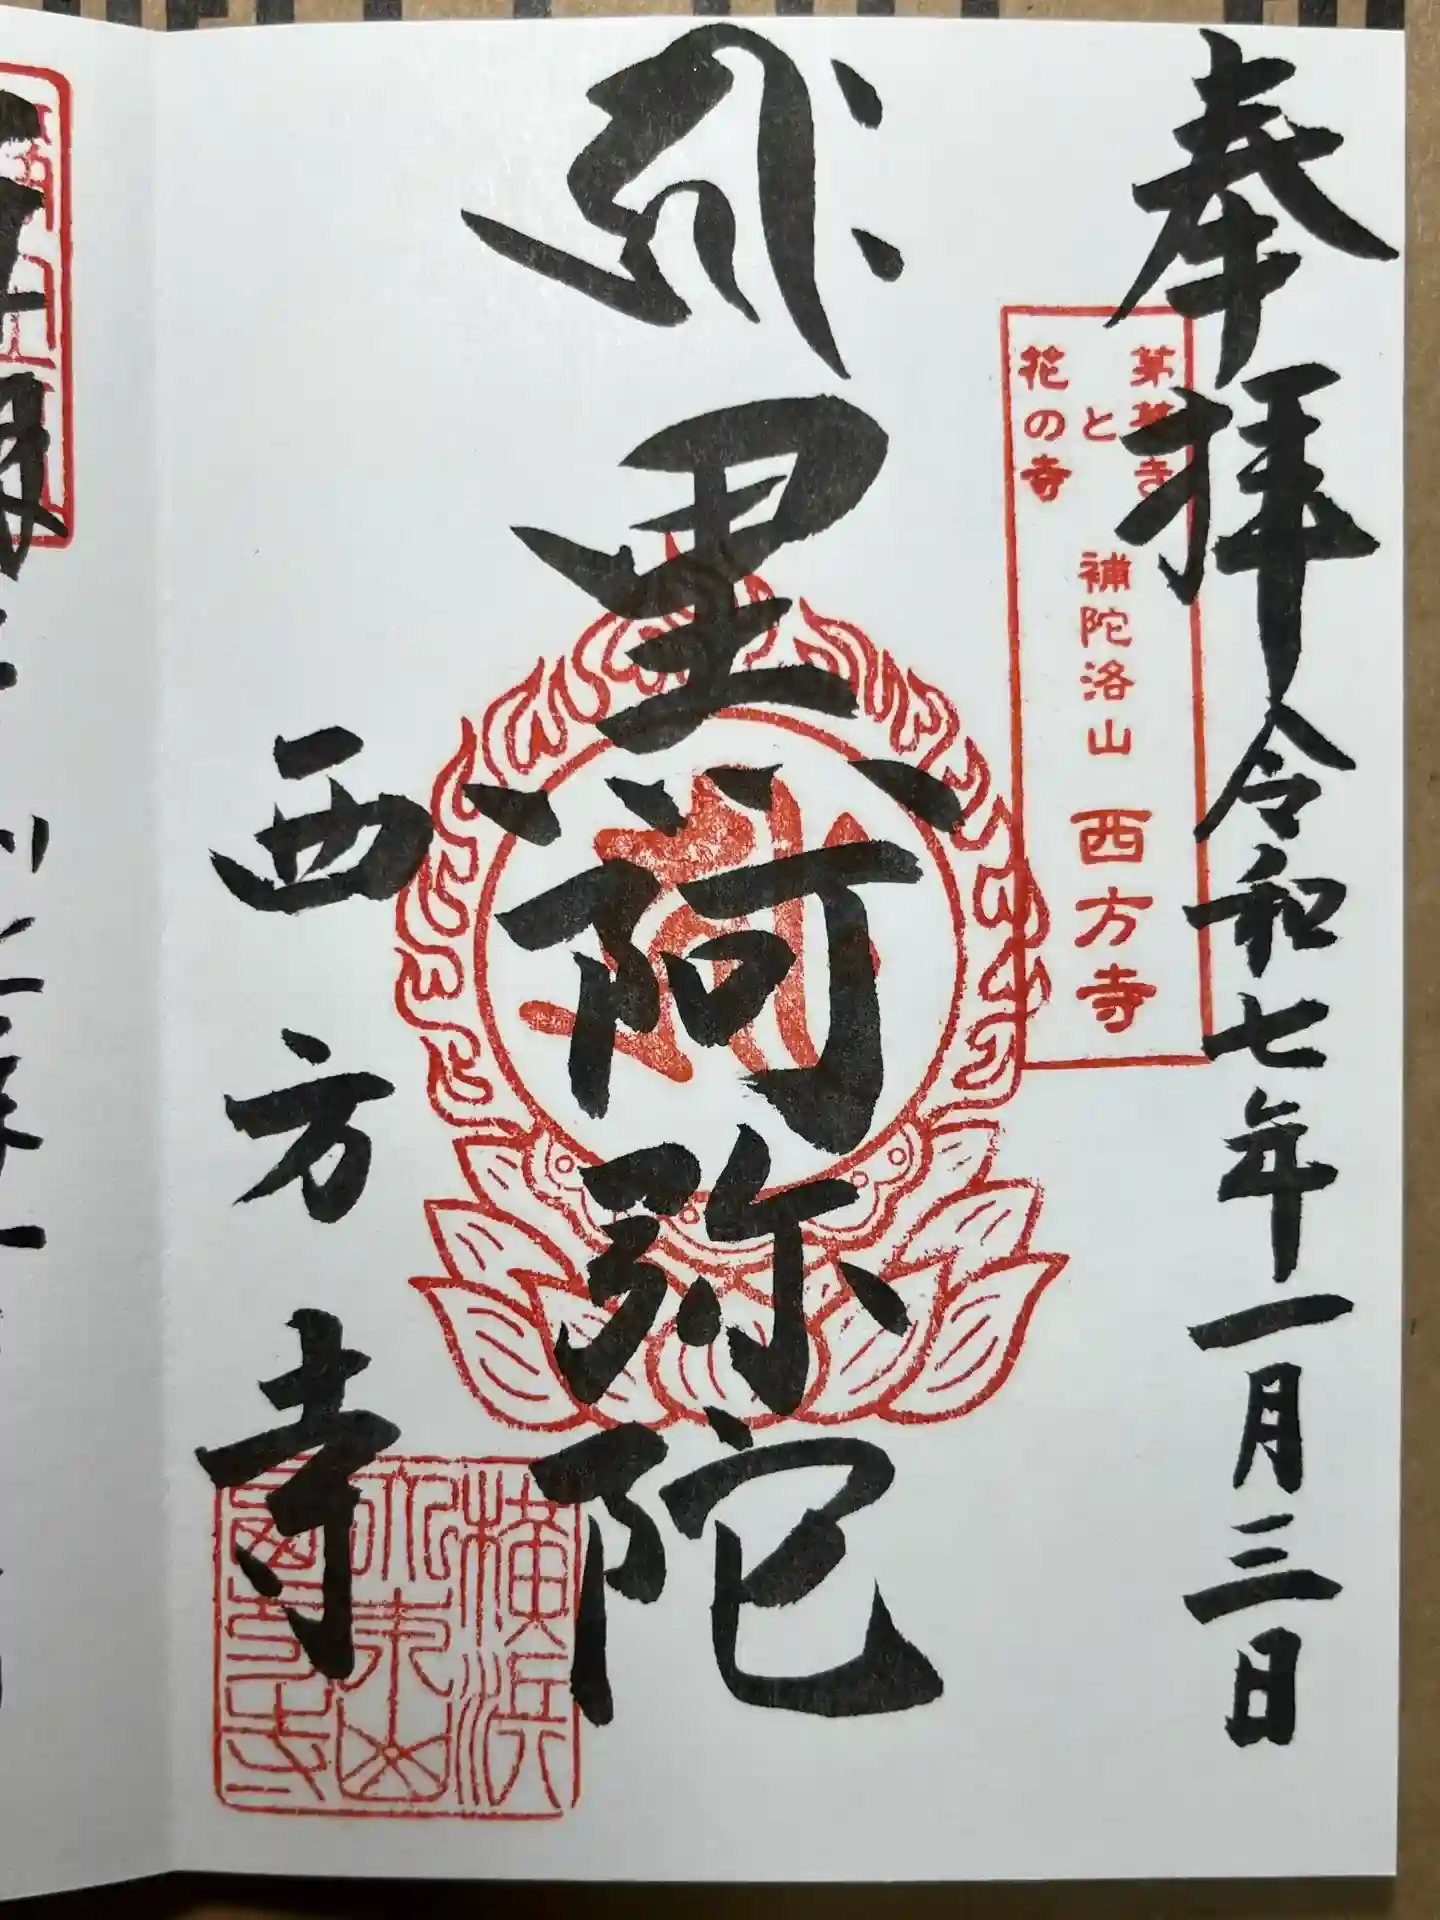 奉拝 令和七年一月三日
茅葺寺
と
花の寺
補陀洛山 西方寺
黒阿弥陀
西方寺
横浜
西方寺